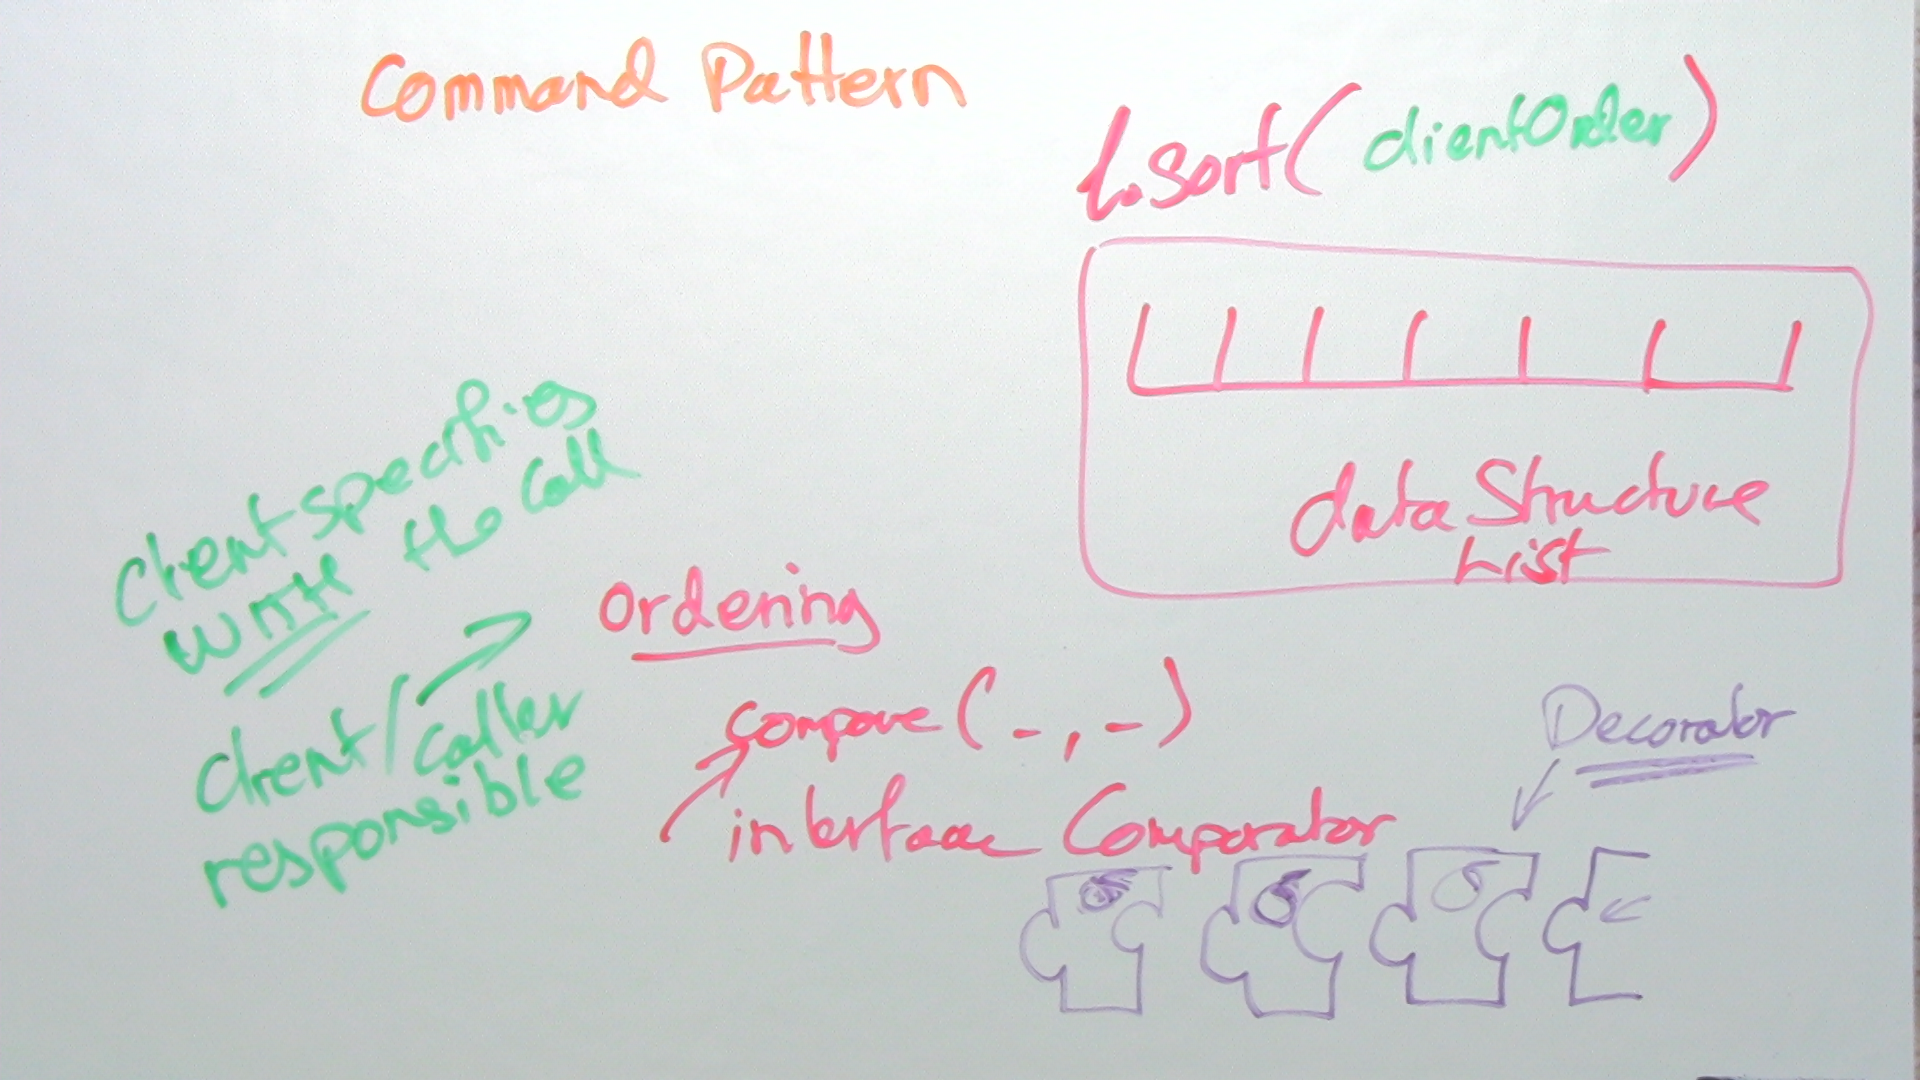 Command Pattern
l.sort(clientOrder)
data Structure
List
client specifies
WITH the call
ordering
client/caller
responsible
compare(-,-)
interface Comparator
Decorator